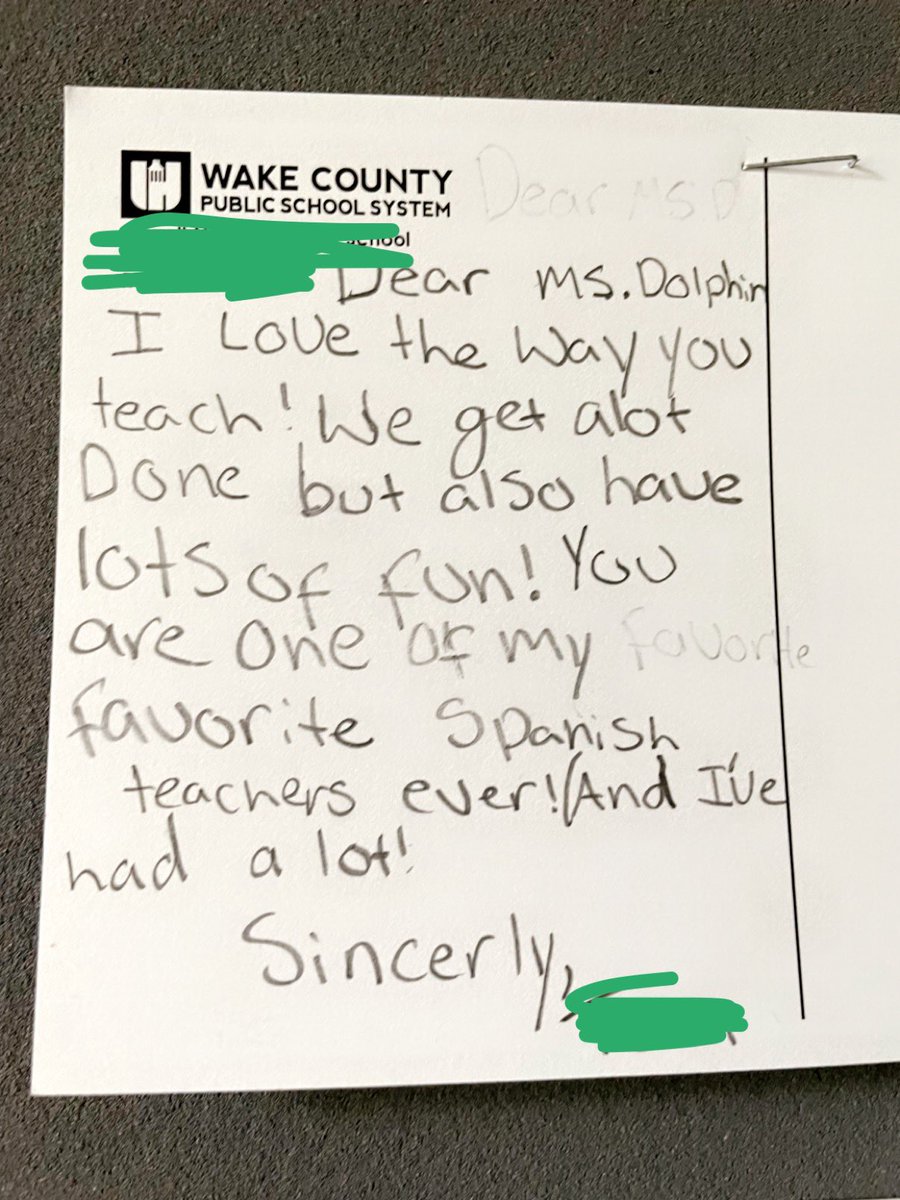 WAKE COUNTY
PUBLIC SCHOOL SYSTEM
Dear Ms D
Dear Ms. Dolphin
I Love the Way you
teach! We get alot
Done but also have
lots of fun! You
are one of my favorite
favorite Spanish
teachers ever! (And I've
had a lot!
Sincerly,